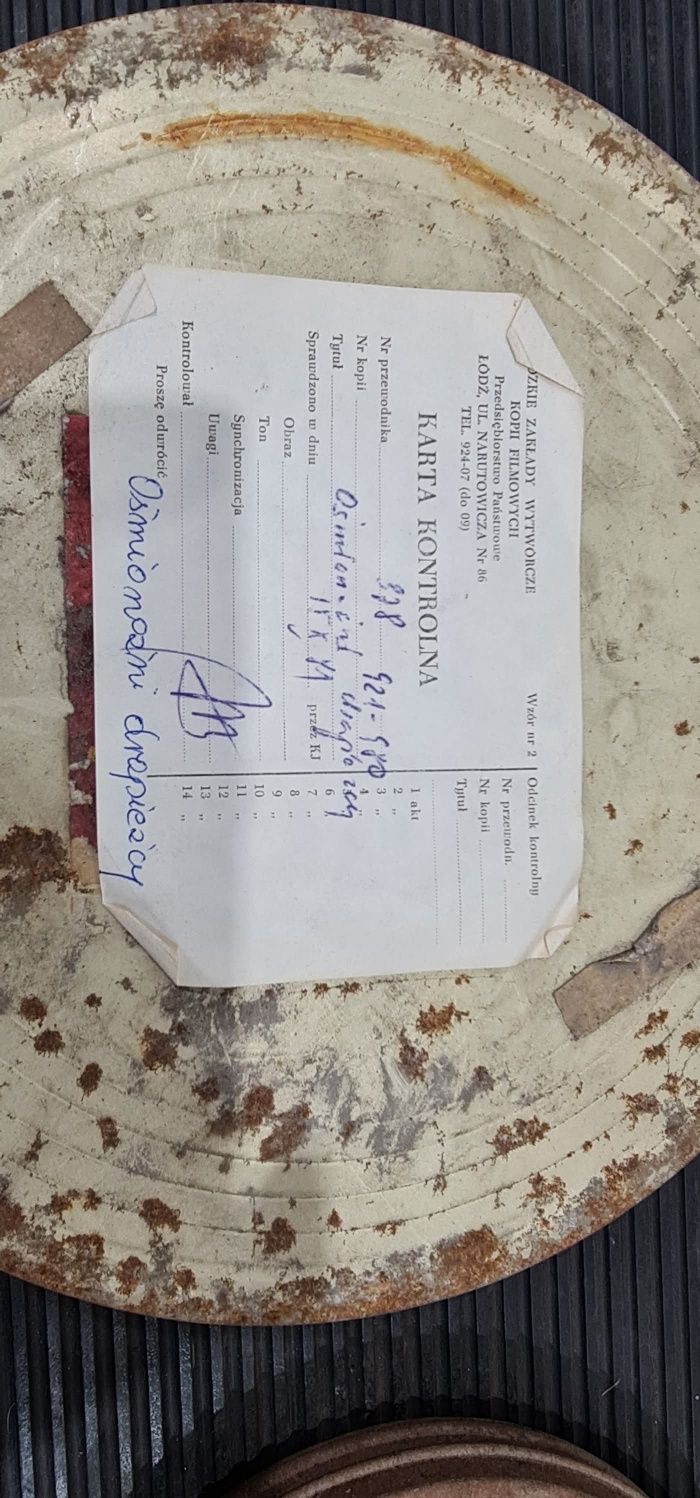 DZKIE ZAKŁADY WYTWÓRCZE
KOPII FILMOWYCH
Przedsiębiorstwo Państwowe
ŁÓDŹ, UL. NARUTOWICZA Nr 86
TEL. 924-07 (do 09)
Wzór nr 2
KARTA KONTROLNA
Nr przewodnika 878
Nr kopii 921-980
Tytuł drapieżny
Sprawdzono w dniu przez KJ
Obraz ✓
Ton
Synchronizacja
Uwagi
Kontrolował
Proszę odwrócić
Ośmionożni drapieżcy
Odcinek kontrolny
Nr przewodn.
Nr kopii
Tytuł
1 akt
2 „
3 „
4 „
6 „
7 „
8 „
9 „
10 „
11 „
12 „
13 „
14 „